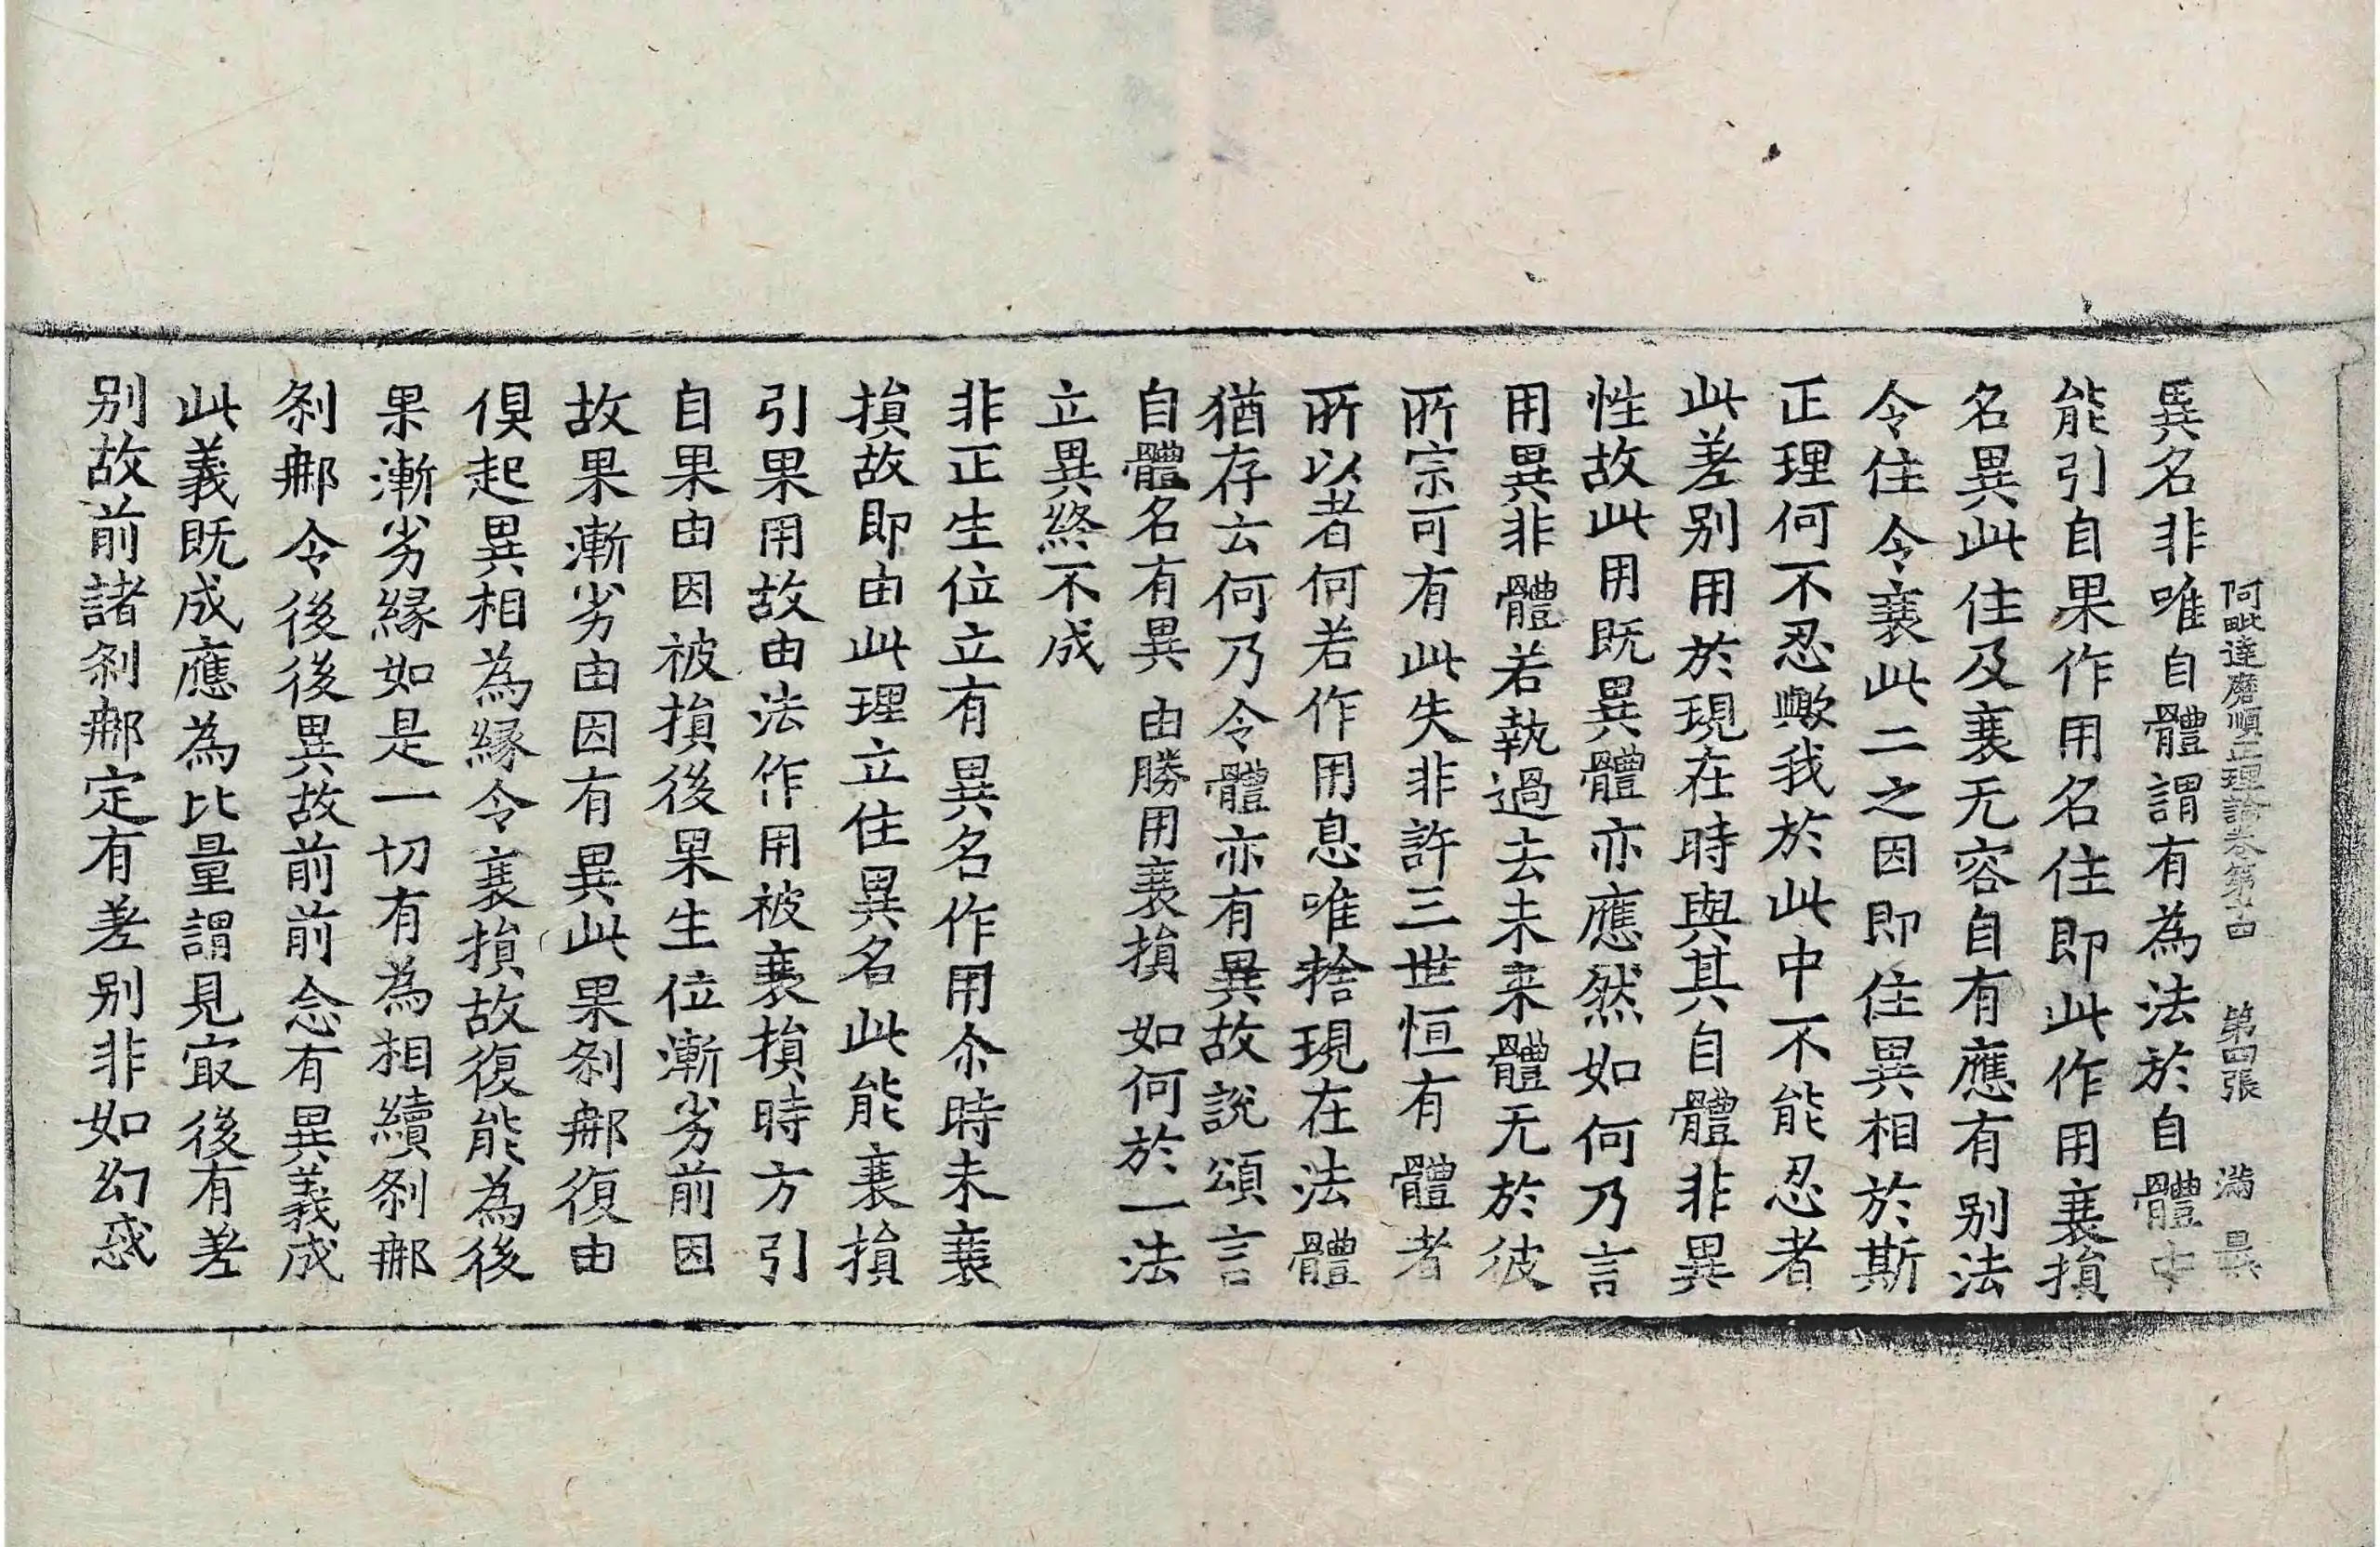 異名非唯自體謂有為法於自體中
阿毗達磨順正理論卷第十四 第四張 滿
能引自果作用名住即此作用衰損
名異此住及衰无容自有應有別法
令住令衰此二之因即住異相於斯
正理何不忍歟我於此中不能忍者
此差別用於現在時與其自體非異
性故此用既異體亦應然如何乃言
用異非體若執過去未來體无於彼
所宗可有此失非許三世恒有體者
所以者何若作用息唯捨現在法體
猶存云何乃令體亦有異故說頌言
自體名有異 由勝用衰損 如何於一法
立異終不成
非正生位立有異名作用尒時未衰
損故即由此理立住異名此能衰損
引果用故由法作用被衰損時方引
自果由因被損後果生位漸劣前因
故果漸劣由因有異此果剎那復由
俱起異相為緣令衰損故復能為後
果漸劣緣如是一切有為相續剎那
剎那令後後異故前前念有異義成
此義既成應為比量謂見㝡後有差
別故前諸剎那定有差別非如幻惑